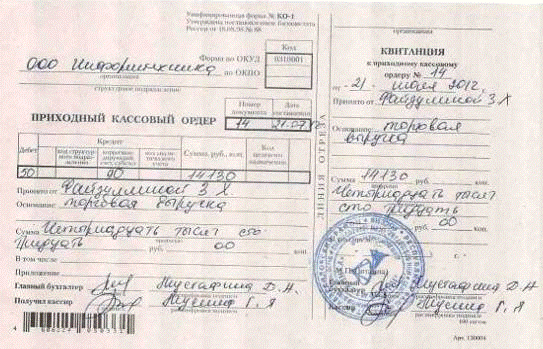 Унифицированная форма № КО-1
Утверждена постановлением Госкомстата
России от 18.08.98 № 88
Код
Форма по ОКУД 0310001
ООО Информтехника по ОКПО
организация
структурное подразделение
Номер документа Дата составления
ПРИХОДНЫЙ КАССОВЫЙ ОРДЕР 14 21.07.12
Дебет Кредит Сумма, руб., коп. Код целевого назначения
код структурного подразделения корреспондирующий счет, субсчет код аналитического учета
50 90 14130
Принято от Файзуллиной З Х.
Основание: торговая выручка
Сумма Четырнадцать тысяч сто
тридцать руб. 00 коп.
прописью
В том числе
Приложение
Главный бухгалтер Мустафина Д.А.
подпись расшифровка подписи
Получил кассир Г. Я
подпись расшифровка подписи
4
ЛИНИЯ ОТРЕЗА
организация
КВИТАНЦИЯ
к приходному кассовому
ордеру № 14
от «21» июля 2012.
Принято от Файзуллиной З Х
Основание: торговая
выручка
Сумма 14130
цифрами
Четырнадцать тысяч
сто тридцать
прописью
руб. 00 коп.
В том числе
М.П. (штампа)
Главный бухгалтер Мустафина Д.А.
расшифровка подписи
Кассир Г. Я
расшифровка подписи